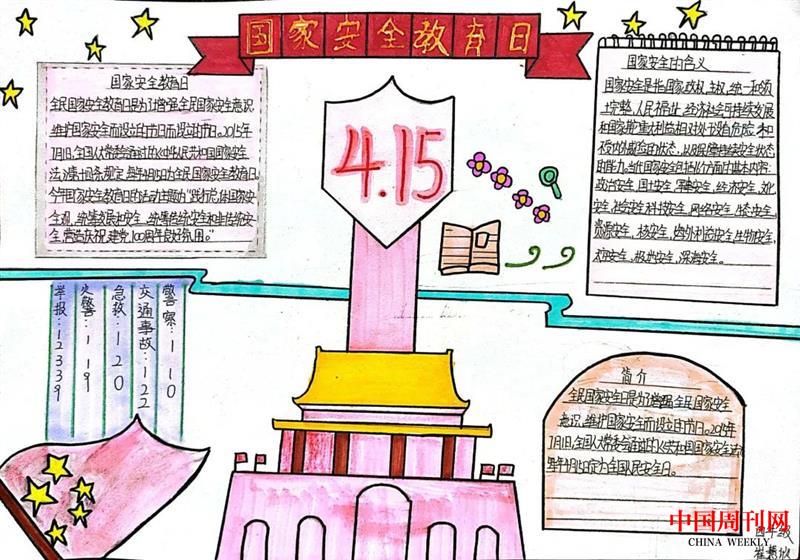 国家安全教育日
国家安全教育日
全民国家安全教育日是为了增强全民国家安全意识,
维护国家安全而设立的节日而设立的节日。2015年
7月1日,全国人大常委会通过的《中华人民共和国国家安全
法》第十四条规定,每年4月15日为全民国家安全教育日。
今年国家安全教育日的活动主题为“践行总体国家安
全观,统筹发展和安全,统筹传统安全和非传统安
全,营造庆祝建党100周年良好氛围。”
4.15
国家安全的含义
国家安全是指国家政权、主权、统一和领
土完整、人民福祉、经济社会可持续发展
和国家其他重大利益相对处于没有危险、和
不受内外威胁的状态,以及保障持续安全状态
的能力。当代国家安全包括16个方面的基本内容:
政治安全、国土安全、军事安全、经济安全、文化
安全、社会安全、科技安全、网络安全、生态安全、
资源安全、核安全、海外利益安全、生物安全、
太空安全、极地安全、深海安全。
警察:110
交通事故:122
急救:120
火警:119
举报:12339
简介
全民国家安全日是为了增强全民国家安全
意识,维护国家安全而设立的节日。2015年
7月1日,全国人大常委会通过的
每年4月15日定为全民国家安全日。
四年级
中国周刊网
CHINA WEEKLY